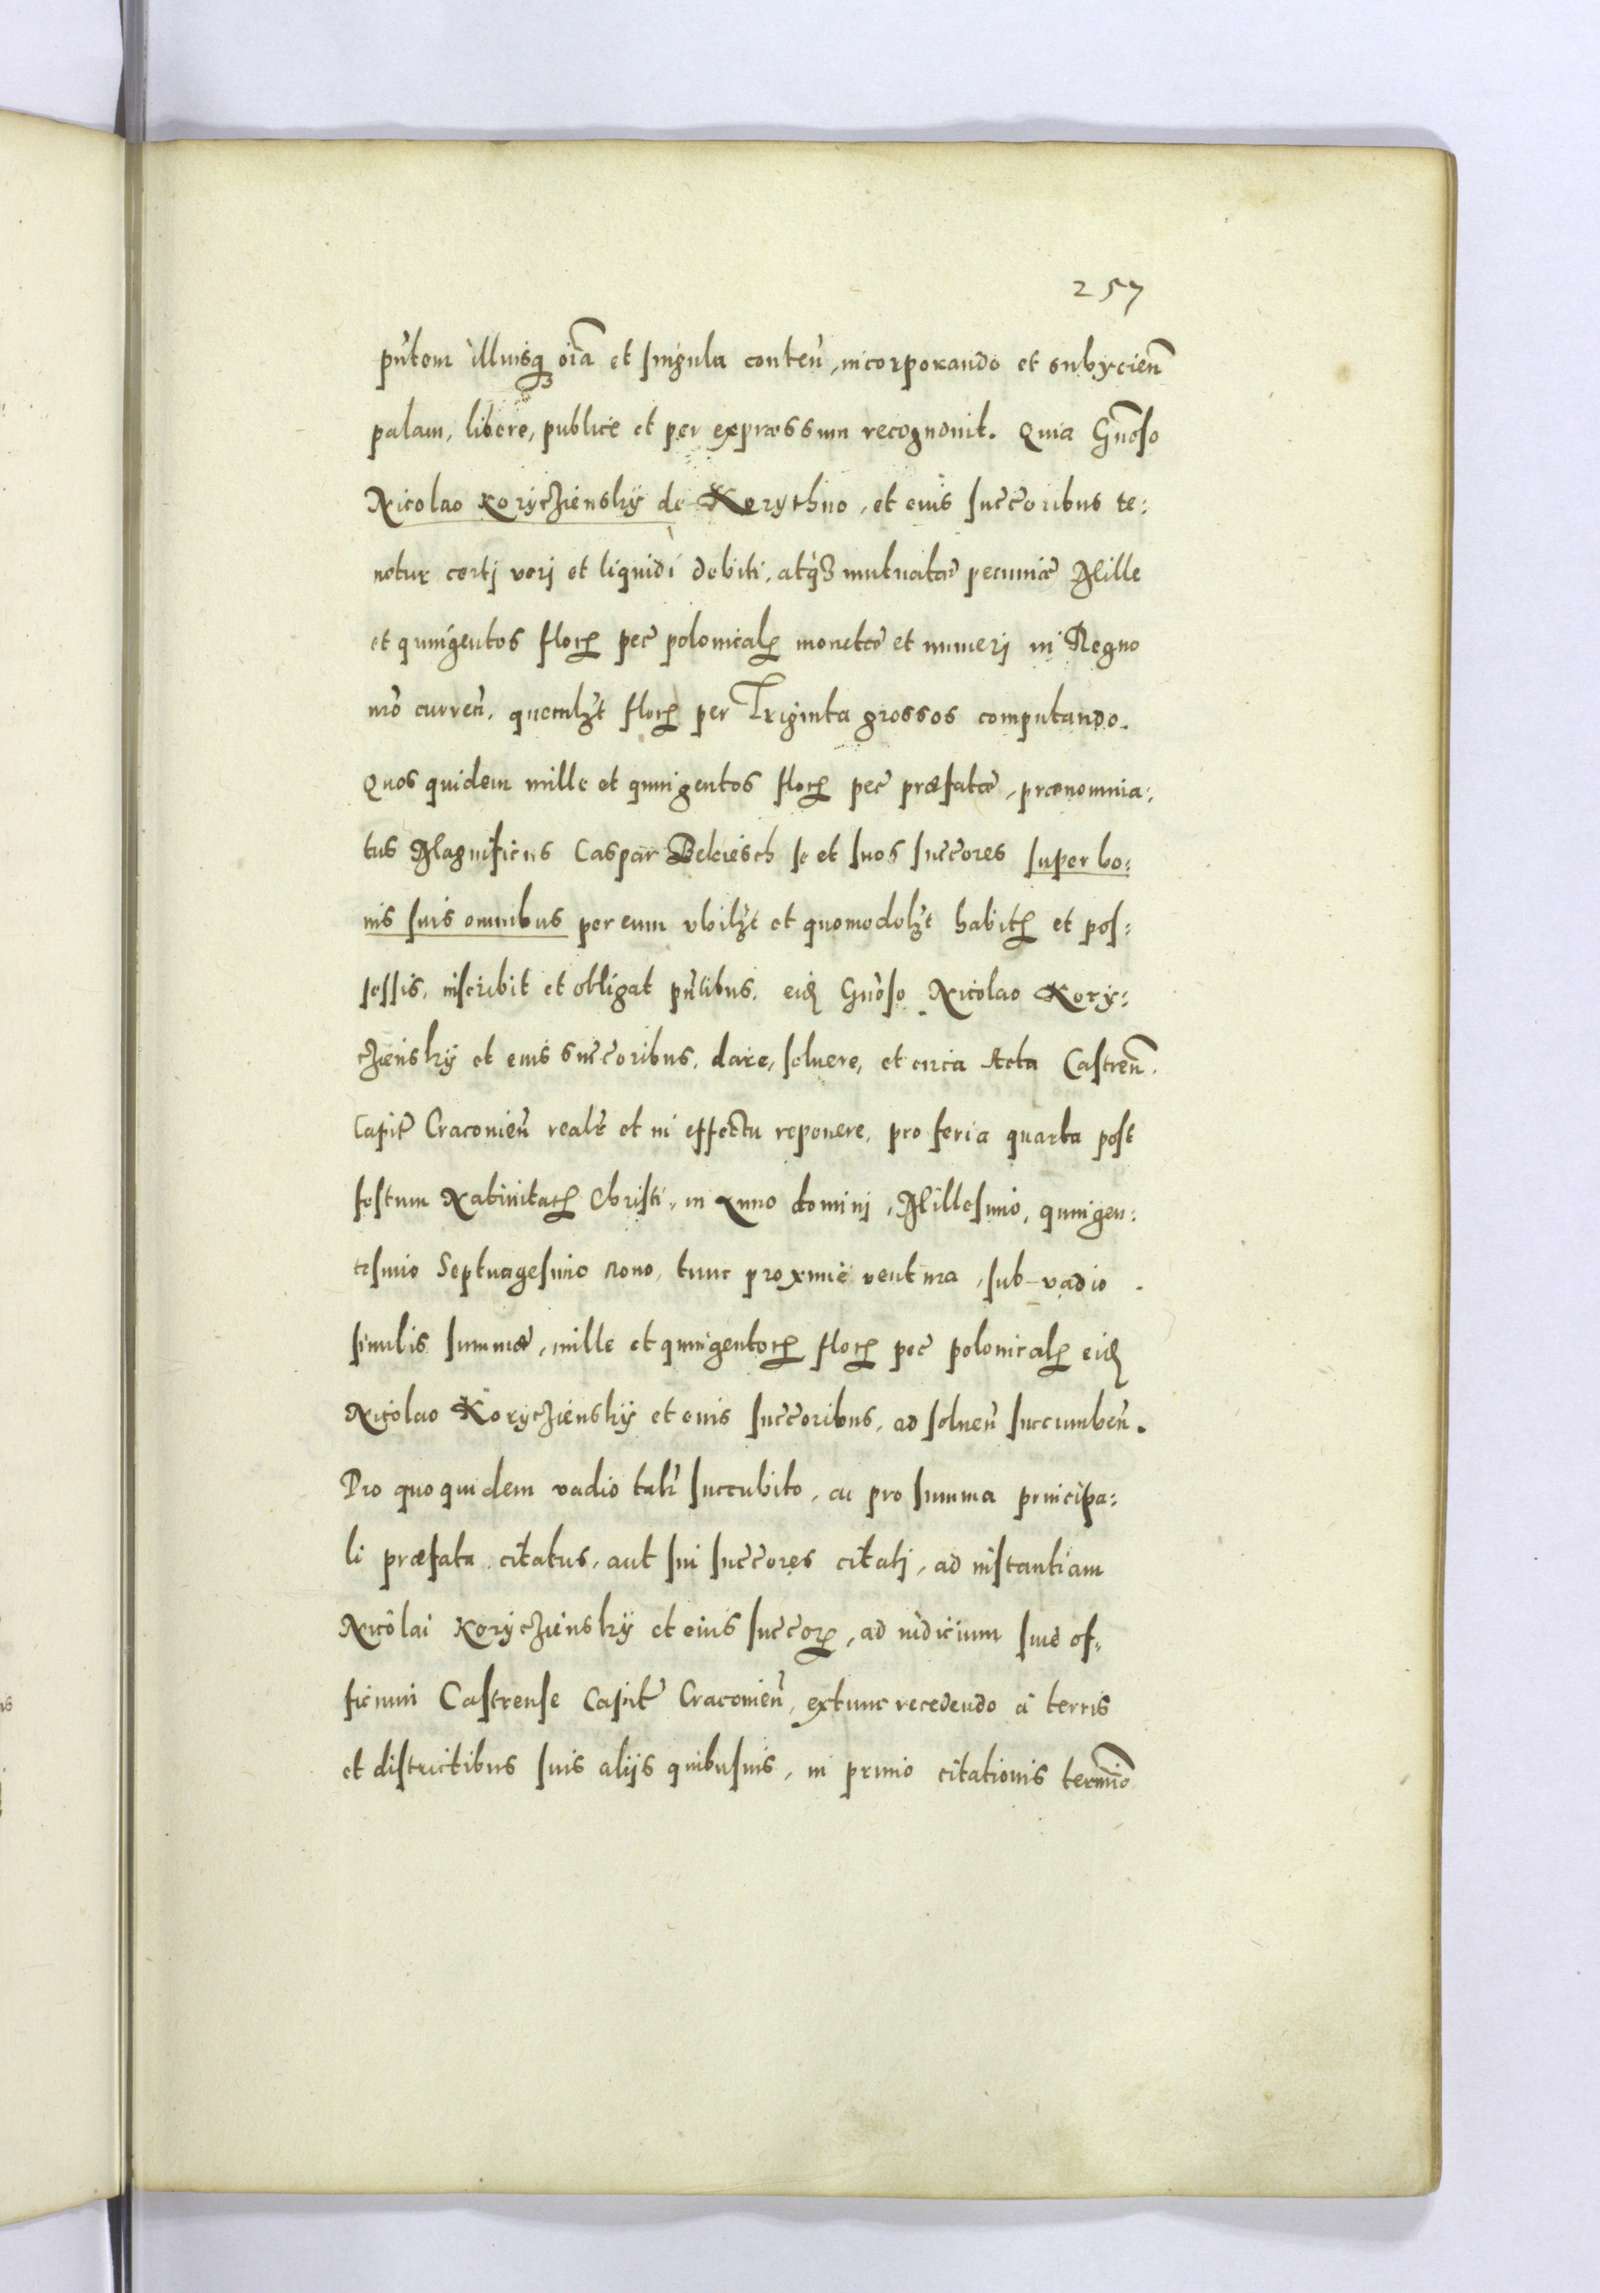 257
pñtem illiusq₃ oı̃a et singula conteñ, incorporando et subycieñ
palam, libere, publice et per expræssum recognouit. Quia Gñoso
Nicolao Koryczienskÿ de Korythno, et eius succ̃oribus te:
netur certj verj et liquidi debiti, atq₃ mutuatæ pecuniæ Mille
et quingentos floꝝ pec̃ polonicalꝝ monetæ et numerj in Regno
nrõ curreñ, quemlꝫt floꝝ per Triginta grossos computando.
Quos quidem mille et quingentos floꝝ pec̃ præfatæ, prænomina:
tus Magnificus Caspar Bekiesch se et suos succ̃ores super bo:
nis suis omnibus per eum vbilꝫt et quomodolꝫt habitꝭ et pos:
sessis, inscribit et obligat pñtibus, eidꝫ Gñoso Nicolao Kory:
czienskÿ et eius succ̃oribus, dare, soluere, et circa Acta Castreñ.
Capit̃ Cracouieñ realr̃ et in effectu reponere, pro feria quarta post
festum Natiuitatꝭ Christi, in Anno domini, Millesimo, quingen:
tesimo Septuagesimo nono, tunc proximè ventura, sub vadio
similis summæ, mille et quingentoꝝ floꝝ pec̃ polonicalꝝ eidꝫ
Nicolao Koryczienskÿ et eius succ̃oribus, ad solueñ succumbeñ.
Pro quo quidem vadio talr̃ succubito, ac pro summa principa:
li præfata citatus, aut sui succ̃ores citatj, ad instantiam
Nicolai Koryczienskÿ et eius succ̃oꝝ, ad iudicium siue of:
ficium Castrense Capit̃ Cracouieñ, extunc recedendo à terris
et districtibus suis alijs quibusuis, in primo citationis termı̃o